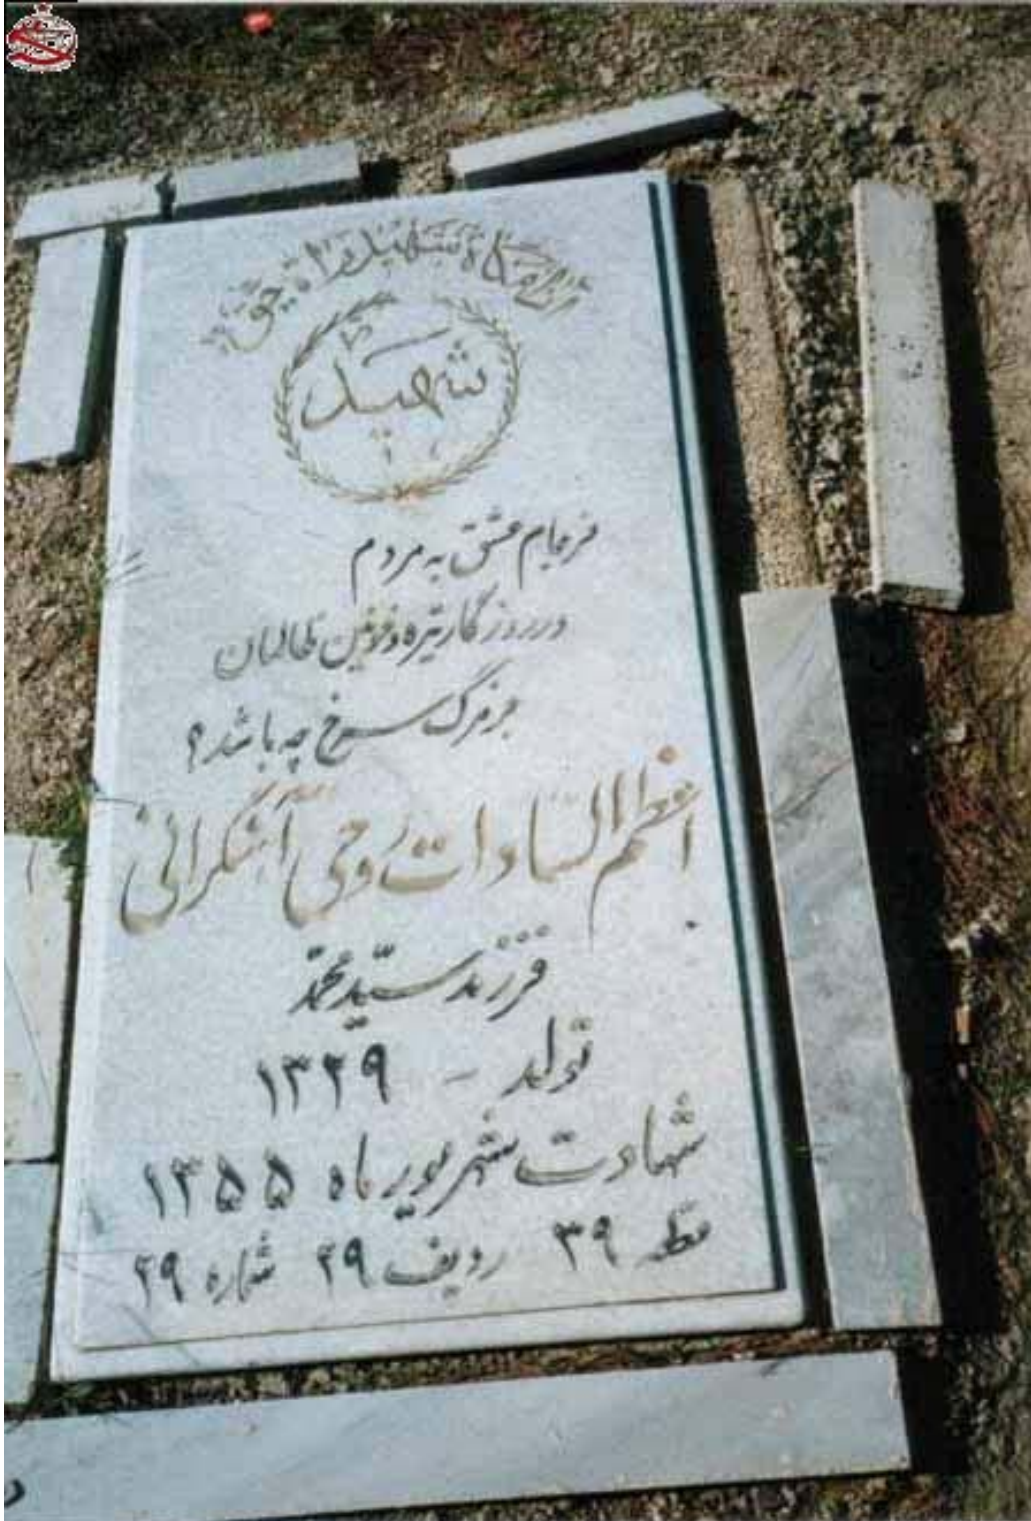 آرامگاه شهید راه حق
شهید
فرجام عشق به مردم
در روزگار تیره و خونین ظالمان
جز مرگ سرخ چه باشد؟
اعظم السادات روحی آهنگرانی
فرزند سید محمد
تولد - ۱۳۲۹
شهادت شهریور ماه ۱۳۵۵
قطعه ۳۹ ردیف ۲۹ شماره ۲۹